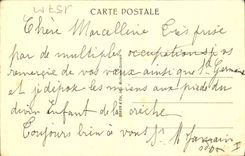 CARTE POSTALE
Chère Marcelline Très prise
par de multiples occupations je vs
remercie de vos vœux ainsi que
et je dépose les miens aux pieds du
divin Enfant de la crèche
Toujours bien à vous